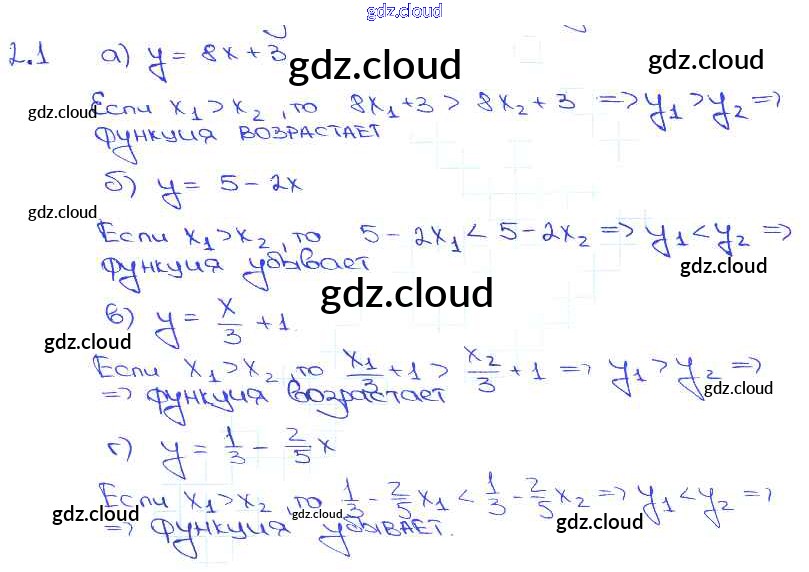 gdz.cloud
2.1 а) y = 8x + 3
gdz.cloud gdz.cloud
Если x₁ > x₂, то 8x₁ + 3 > 8x₂ + 3 => y₁ > y₂ =>
gdz.cloud
функция возрастает
б) y = 5 - 2x
gdz.cloud
Если x₁ > x₂, то 5 - 2x₁ < 5 - 2x₂ => y₁ < y₂ =>
функция убывает
gdz.cloud
gdz.cloud
в) y = x/3 + 1.
gdz.cloud
Если x₁ > x₂, то x₁/3 + 1 > x₂/3 + 1 => y₁ > y₂ =>
=> функция возрастает
gdz.cloud
г) y = 1/3 - 2/5 x
Если x₁ > x₂, то 1/3 - 2/5 x₁ < 1/3 - 2/5 x₂ => y₁ < y₂ =>
gdz.cloud gdz.cloud gdz.cloud
=> функция убывает.